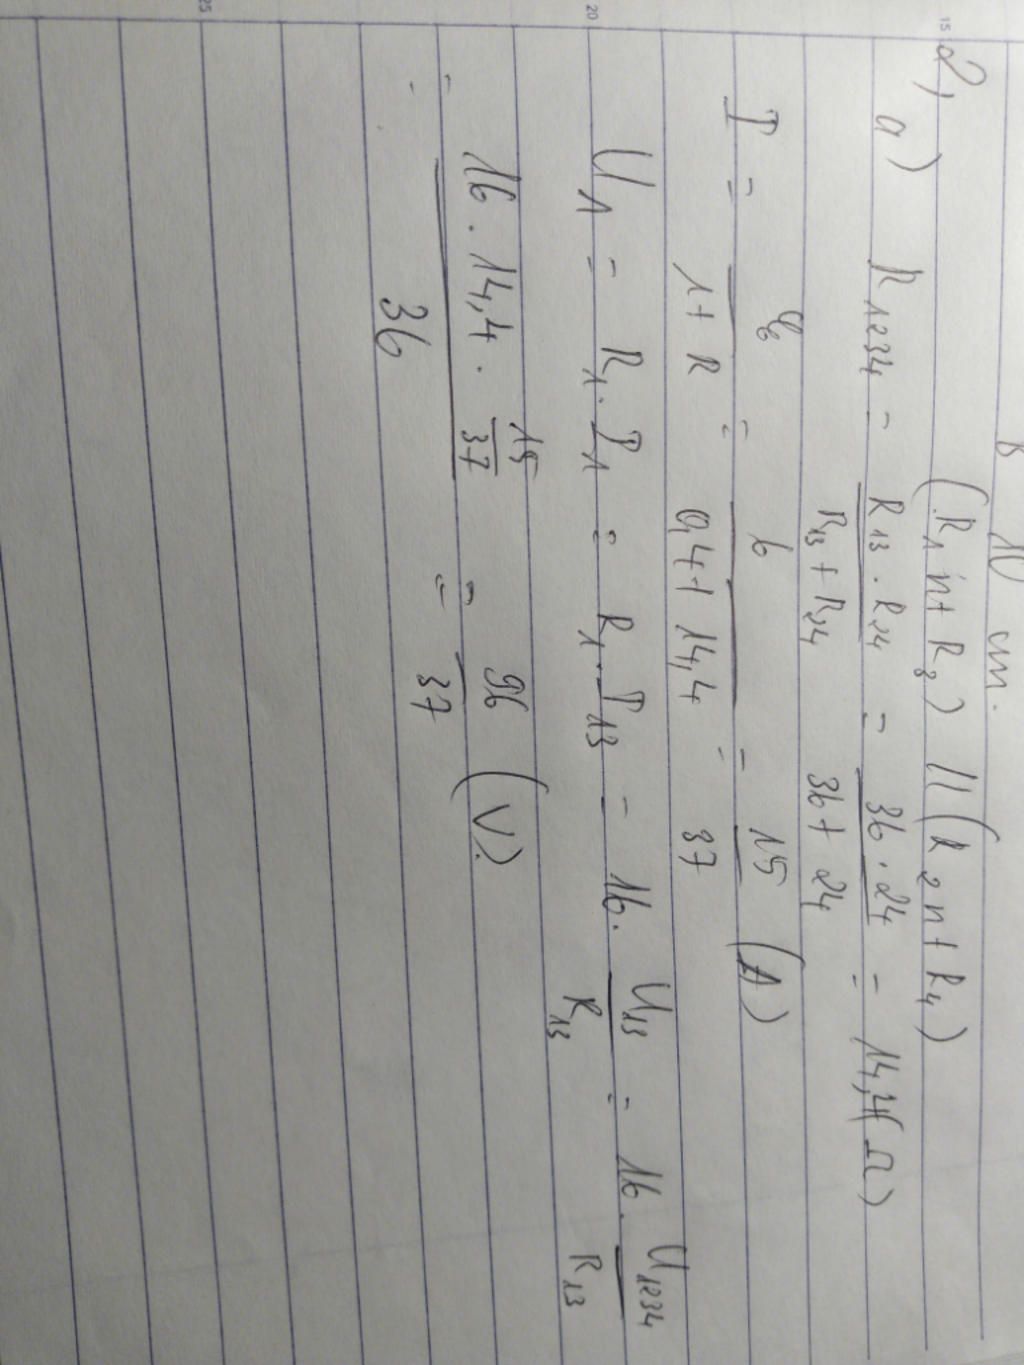 10 cm.
2, (R1 nt R3) // (R2 nt R4)
a) R1234 = R13 . R24 / R13 + R24 = 36 . 24 / 36 + 24 = 14,4 (Ω)
I = ξ / r + R = 6 / 0,4 + 14,4 = 15 / 37 (A)
U1 = R1 . I1 = R1 . I13 = 16 . U13 / R13 = 16 . U1234 / R13
= 16 . 14,4 . 15/37 / 36 = 96 / 37 (V).
15
20
25